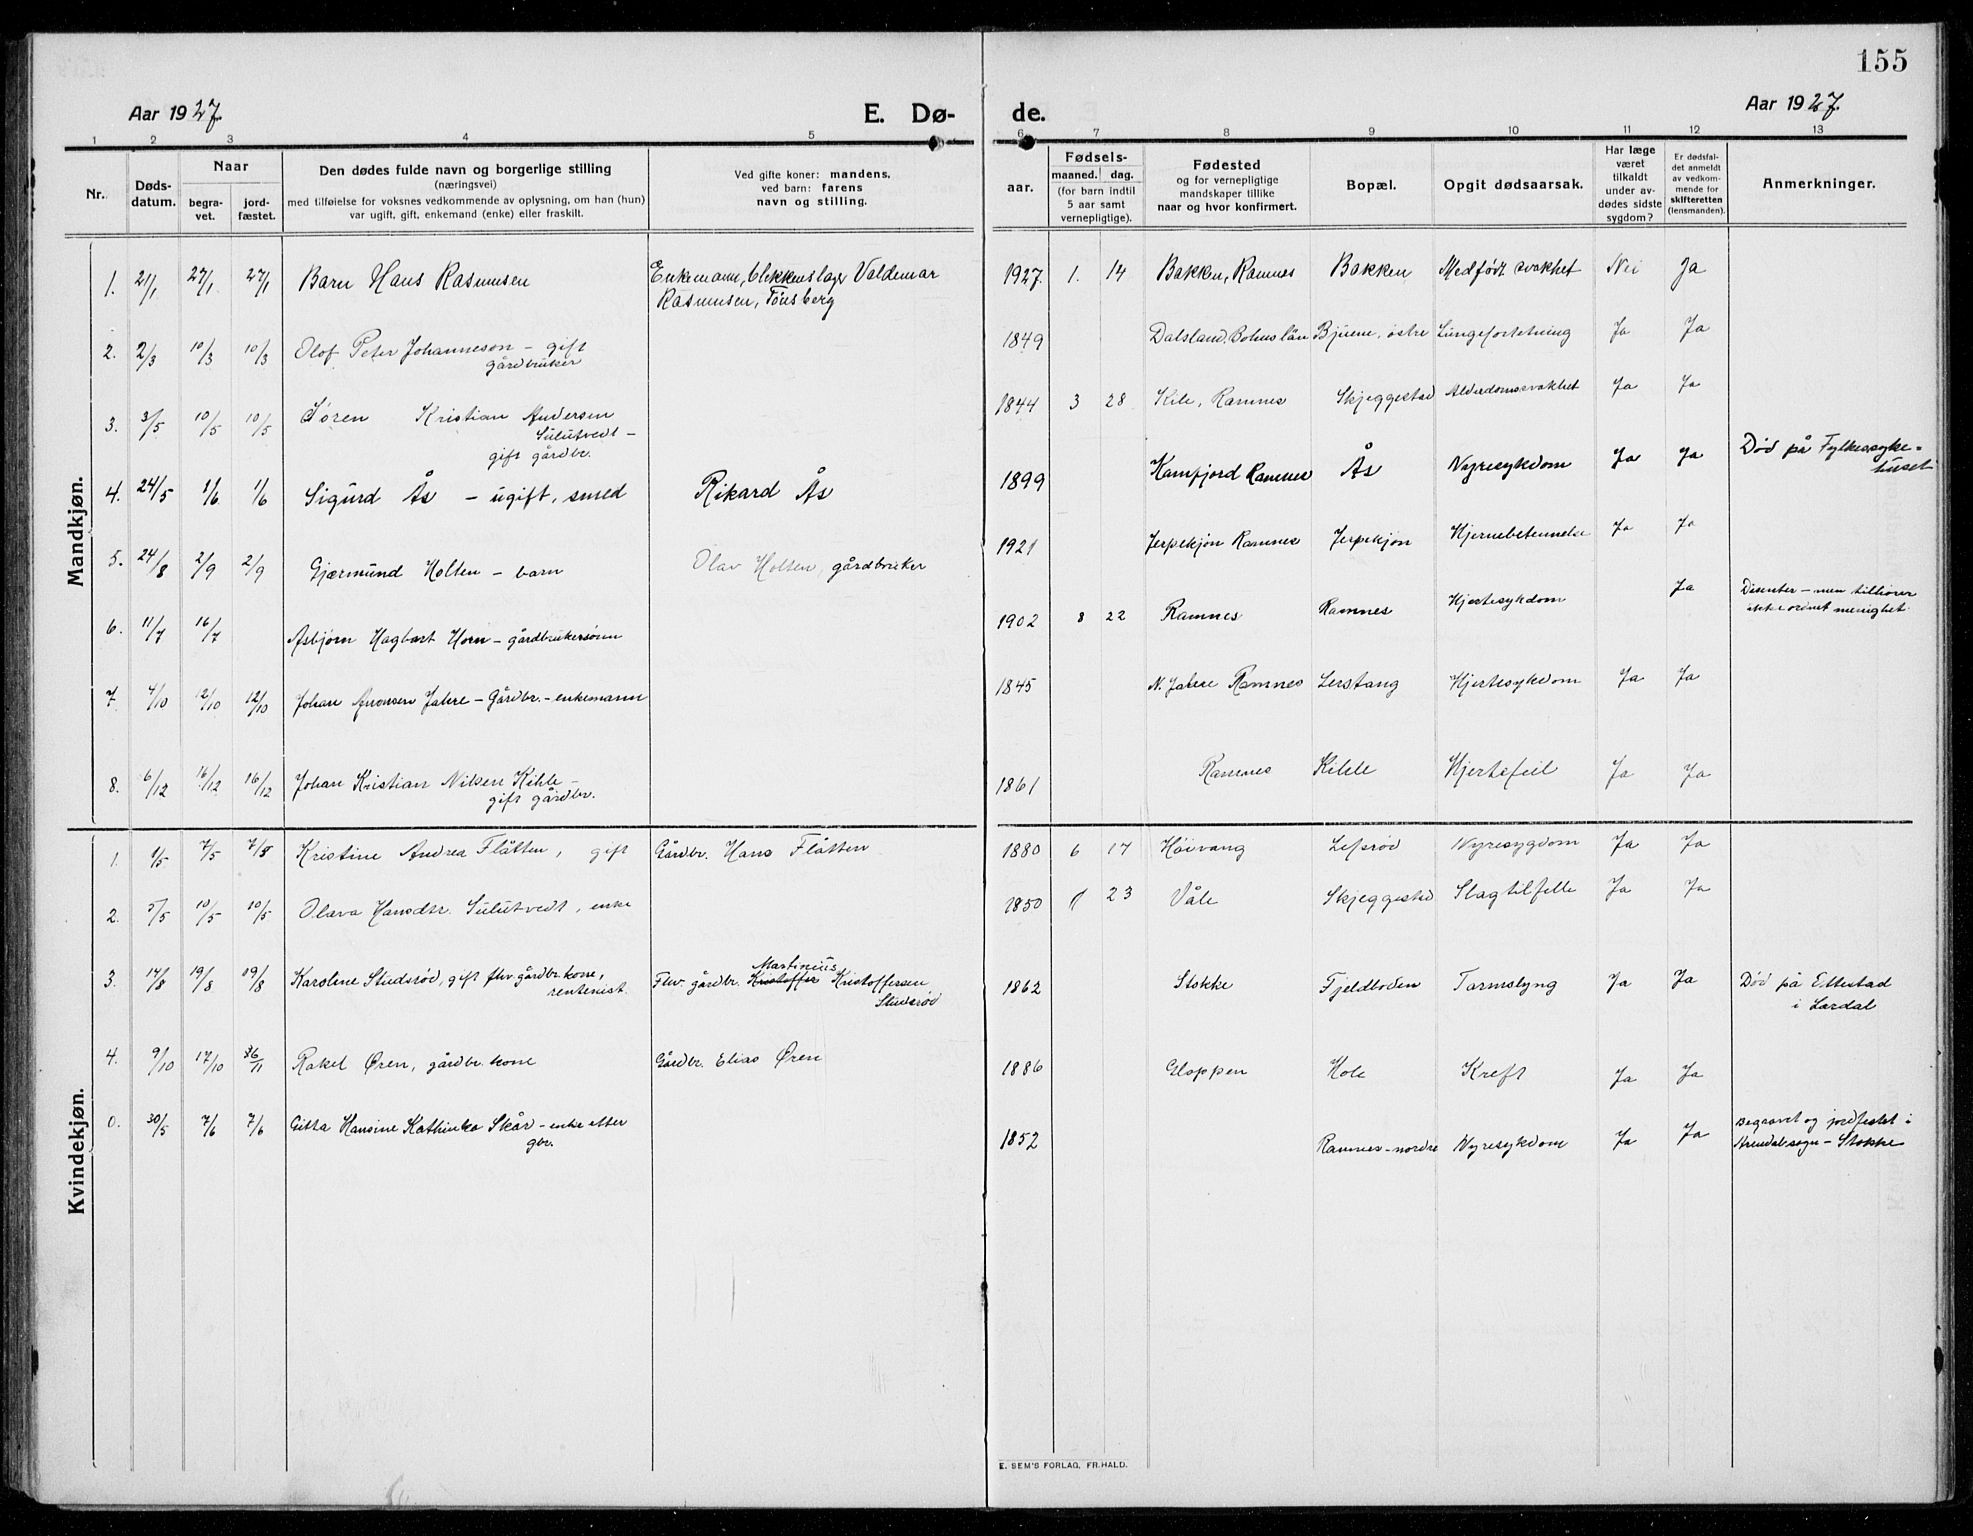 155
Aar 1927.
E. Dø-
de.
Aar 1927.
1 2 3 4 5 6 7 8 9 10 11 12 13
Nr.
Døds-
datum.
Naar
begra-
vet.
jord-
fæstet.
Den dødes fulde navn og borgerlige stilling
(næringsvei)
med tilføielse for voksnes vedkommende av oplysning, om han (hun)
var ugift, gift, enkemand (enke) eller fraskilt.
Ved gifte koner: mandens.
ved barn: farens
navn og stilling.
aar.
Fødsels-
maaned. dag.
(for barn indtil
5 aar samt
vernepligtige).
Fødested
og for vernepligtige
mandskaper tillike
naar og hvor konfirmert.
Bopæl.
Opgit dødsaarsak.
Har læge
været
tilkaldt
under av-
dødes sidste
sygdom?
Er dødsfal-
det anmeldt
av vedkom-
mende for
skifteretten
(lensmanden).
Anmerkninger.
Mandkjøn.
1. 21/1 27/1 27/1 Barn Hans Rasmusen Enkemann, blikkenslager Valdemar
Rasmusen, Tønsberg
1927. 1. 14 Bakken, Ramnes Bakken Medfødt svakhet Nei Ja
2. 2/3 10/3 10/3 Olof Peter Johanneson – gift
gårdbruker
1849 Dalsland, Bohuslän Bjuene, østre Lungefortetning Ja Ja
3. 3/5 10/5 10/5 Søren Kristian Andersen
Sulutvedt –
gift gårdbr.
1844 3 28 Kile, Ramnes Skjeggestad Alderdomssvakhet Ja Ja
4. 24/5 1/6 1/6 Sigurd Ås – ugift, smed Rikard Ås
1899 Kamfjord Ramnes Ås Nyresykdom Ja Ja Død på Fylkessyke-
huset
5. 24/8 2/9 2/9 Gjærmund Holten – barn Olav Holten, gårdbruker
1921 Jerpekjøn Ramnes Jerpekjøn Hjernebetennelse Ja Ja
6. 11/7 16/7 Asbjørn Hagbart Horn – gårdbrukersønn
1902 8 22 Ramnes Ramnes Hjertesykdom Ja Disenter – men tilhører
ikke ordnet menighet.
7 4/10 12/10 12/10 Johan Aronsen Jahre – Gårdbr. – enkemann
1845 N. Jahre Ramnes Lerstang Hjertesykdom Ja Ja
8. 6/12 16/12 16/12 Johan Kristian Nilsen Kihle –
gift gårdbr.
1861 Ramnes Kihle Hjertefeil Ja Ja
Kvindekjøn.
1. 1/5 7/5 7/8 Kristine Andrea Flåtten, gift Gårdbr. Hans Flåtten
1880 6 17 Høivang Lefsrød Nyresygdom Ja Ja
2. 5/5 10/5 10/5 Olava Hansdtr. Sulutvedt, enke
1850 23 Våle Skjeggestad Slagtilfelle Ja Ja
3. 14/8 19/8 19/8 Karoline Studsrød, gift fhv. gårdbr. kone,
rentenist.
Martinius
Fhv. gårdbr. Kristoffer Kristoffersen
Studsrød
1862 Stokke Fjeldboden Tarmslyng Ja Ja Død på Ettestad
i Lardal
4. 9/10 17/10 Rakel Øren, gårdbr. kone Gårdbr. Elias Øren
1886 Gloppen Hole Kreft Ja Ja
0. 30/5 7/6 7/6 Gitta Hansine Kathinka Skår – enke etter
gbr.
1852 Ramnes – nordre Nyresykdom Ja Ja Begravet og jordfestet i
Arendalsogn – Stokke
E. SEM'S FORLAG, FR.HALD.